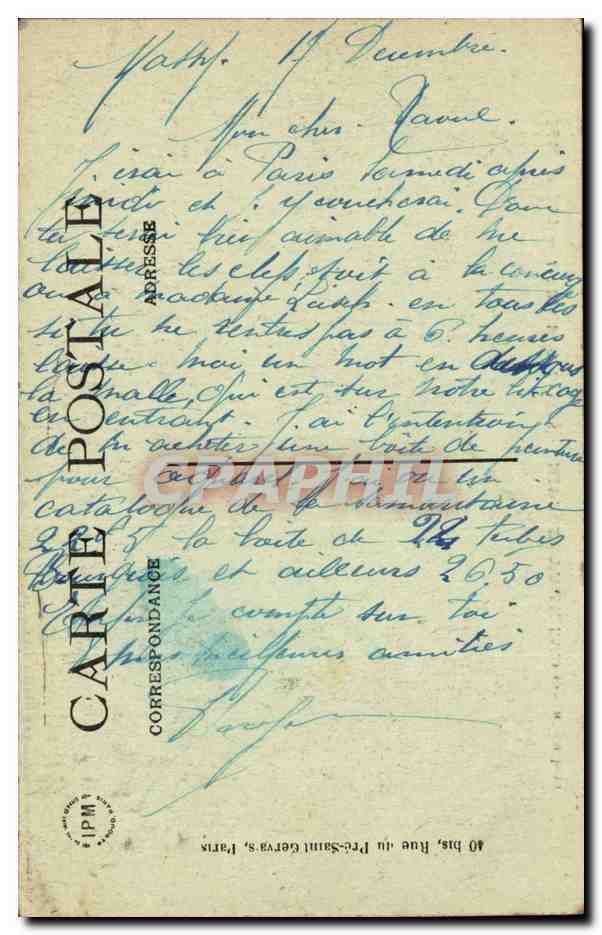 17 Decembre.
Mon cher Raoul.
J'irai à Paris samedi après
midi et j'y coucherai. Donc
tu serai bien aimable de me
laisser les clefs soit à la concierge
ou à madame en tous cas
si tu ne rentres pas à 6 heures
laisse moi un mot en dessous
la malle, qui est sur notre
en entrant. J'ai l'intention
de m'acheter une boîte de peinture
pour j'ai vu un
catalogue de la Samaritaine
la boîte de 24 tubes
Bourgeois et ailleurs 26.50
Enfin je compte sur toi
meilleures amitiés
CARTE POSTALE
ADRESSE
CORRESPONDANCE
CPAPHIL
IPM
40 bis, Rue du Pré-Saint Gervais, Paris